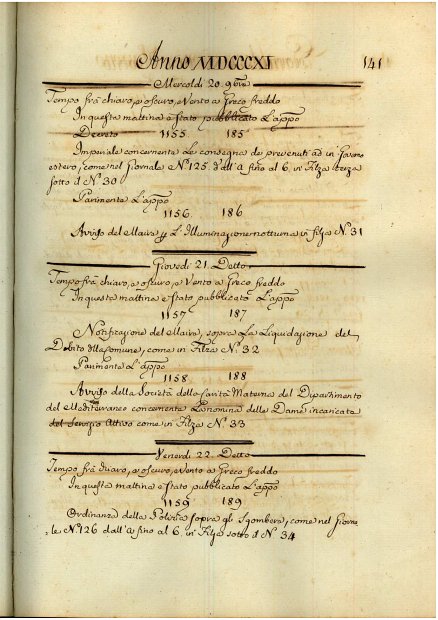 Anno MDCCCXI 141
Mercoldi 20. 9bre
Tempo frà chiaro, e oscuro, e Vento a Greco freddo
In questa mattina è stato pubblicato L'appo
Decreto 1155 185
Imperiale concernente la consegna de prevenuti ad un Governo
estero, come nel Giornale No 125. dall' a fino al 6. in Filza terza
sotto d No 30
Parimente L'appo
1156. 186
Avviso del Maire p L'Illuminazione notturna in filza No 31
Giovedi 21. Detto
Tempo frà chiaro, e oscuro, e Vento a Greco freddo
In questa mattina è stato pubblicato L'appo
1157 187
Notificazione del Maire, sopra La Liquidazione del
Debito della Comune, come in Filza No 32
Parimente L'appo
1158 188
Avviso della Società della Carità Materna del Dipartimento
del Mediterraneo concernente La nomina delle Dame incaricate
del Servizio Attivo come in Filza No 33
Venerdi 22. Detto
Tempo frà chiaro, e oscuro, e Vento a Greco freddo
In questa mattina è stato pubblicato L'appo
1159 189
Ordinanza della Polizia sopra gli Sgomberi, come nel Giorna
le No 126 dall' a fino al 6. in Filza sotto d No 34